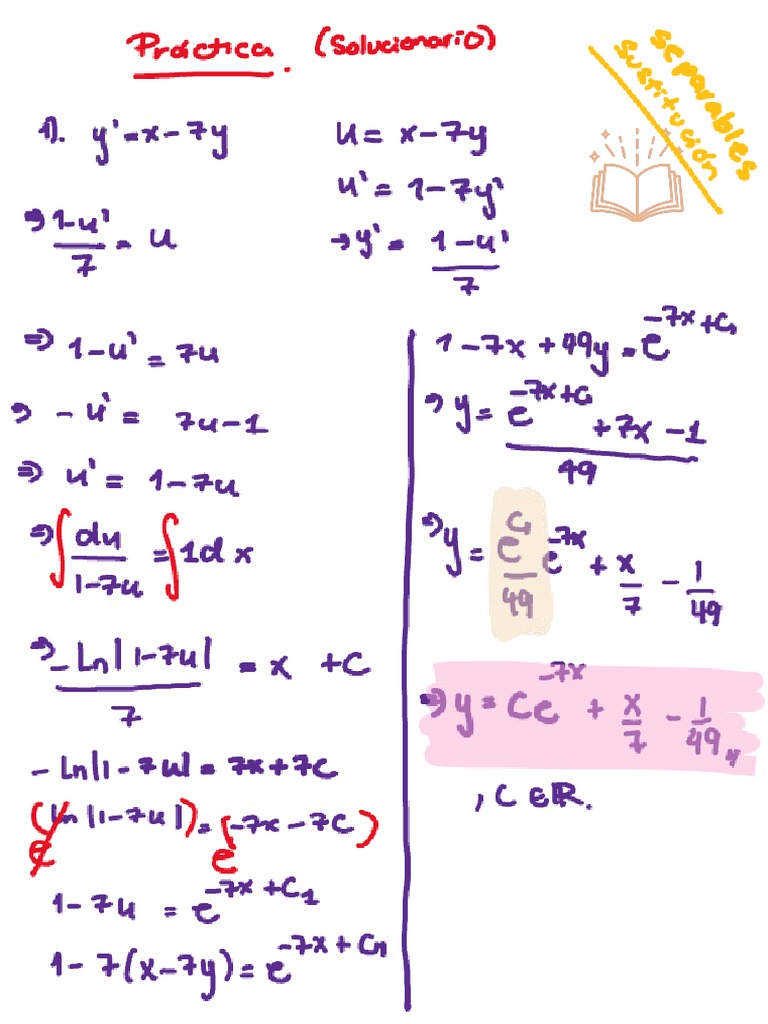 Práctica. (Solucionario)
Separables
Sustitución
1). y' = x - 7y
u = x - 7y
u' = 1 - 7y'
⇒ (1-u')/7 = u
→ y' = (1-u')/7
⇒ 1 - u' = 7u
⇒ -u' = 7u - 1
⇒ u' = 1 - 7u
⇒ ∫ du/(1-7u) = ∫ 1dx
⇒ -Ln|1-7u|/7 = x + C
-Ln|1-7u| = 7x + 7C
e^(ln|1-7u|) = e^(-7x-7C)
1 - 7u = e^(-7x+C₁)
1 - 7(x-7y) = e^(-7x+C₁)
1 - 7x + 49y = e^(-7x+C₁)
⇒ y = (e^(-7x+C₁) + 7x - 1)/49
⇒ y = (e^(C₁)/49) e^(-7x) + x/7 - 1/49
⇒ y = Ce^(-7x) + x/7 - 1/49 //
, C ∈ ℝ.